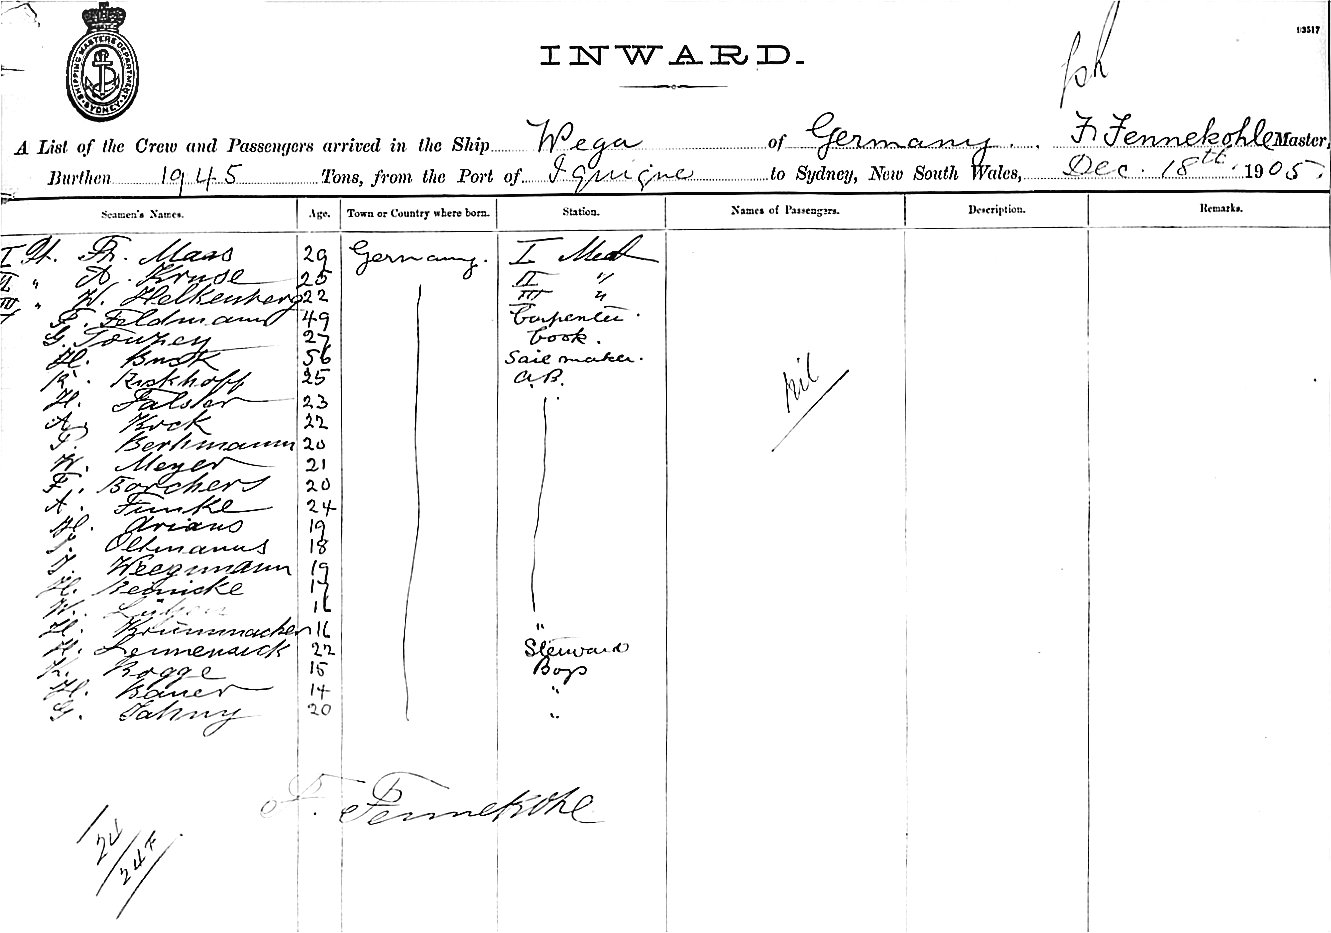 SHIPPING MASTERS DEPARTMENT SYDNEY
13517
INWARD.
A List of the Crew and Passengers arrived in the Ship Wega of Germany. F. Fennekohle Master,
Burthen 1945 Tons, from the Port of Iquique to Sydney, New South Wales, Dec. 18th. 1905.
Seamen's Names. Age. Town or Country where born. Station. Names of Passengers. Description. Remarks.
I St. Fh. Maas 29 Germany. I Mat
II " A. Kruse 25 II "
III " W. Helkenberg 22 III "
F. Feldmann 49 Carpenter.
G. 27 Cook.
H. Busk 56 Sailmaker.
R. Riskhoff 25 A.B.
H. Falster 23
A. Kock 22
Berkmann 20
W. Meyer 21
F. Borchers 20
A. Funke 24
H. Arians 19
Oltmanns 18
Weegmann 19
H. Reinicke 17
W. 16
H. Krummacker 16 "
H. Lennensick 22 Steward
K. Rogge 15 Boys
H. Bauer 14 "
G. Jahny 20 "
nil
F. Fennekohl
24
24